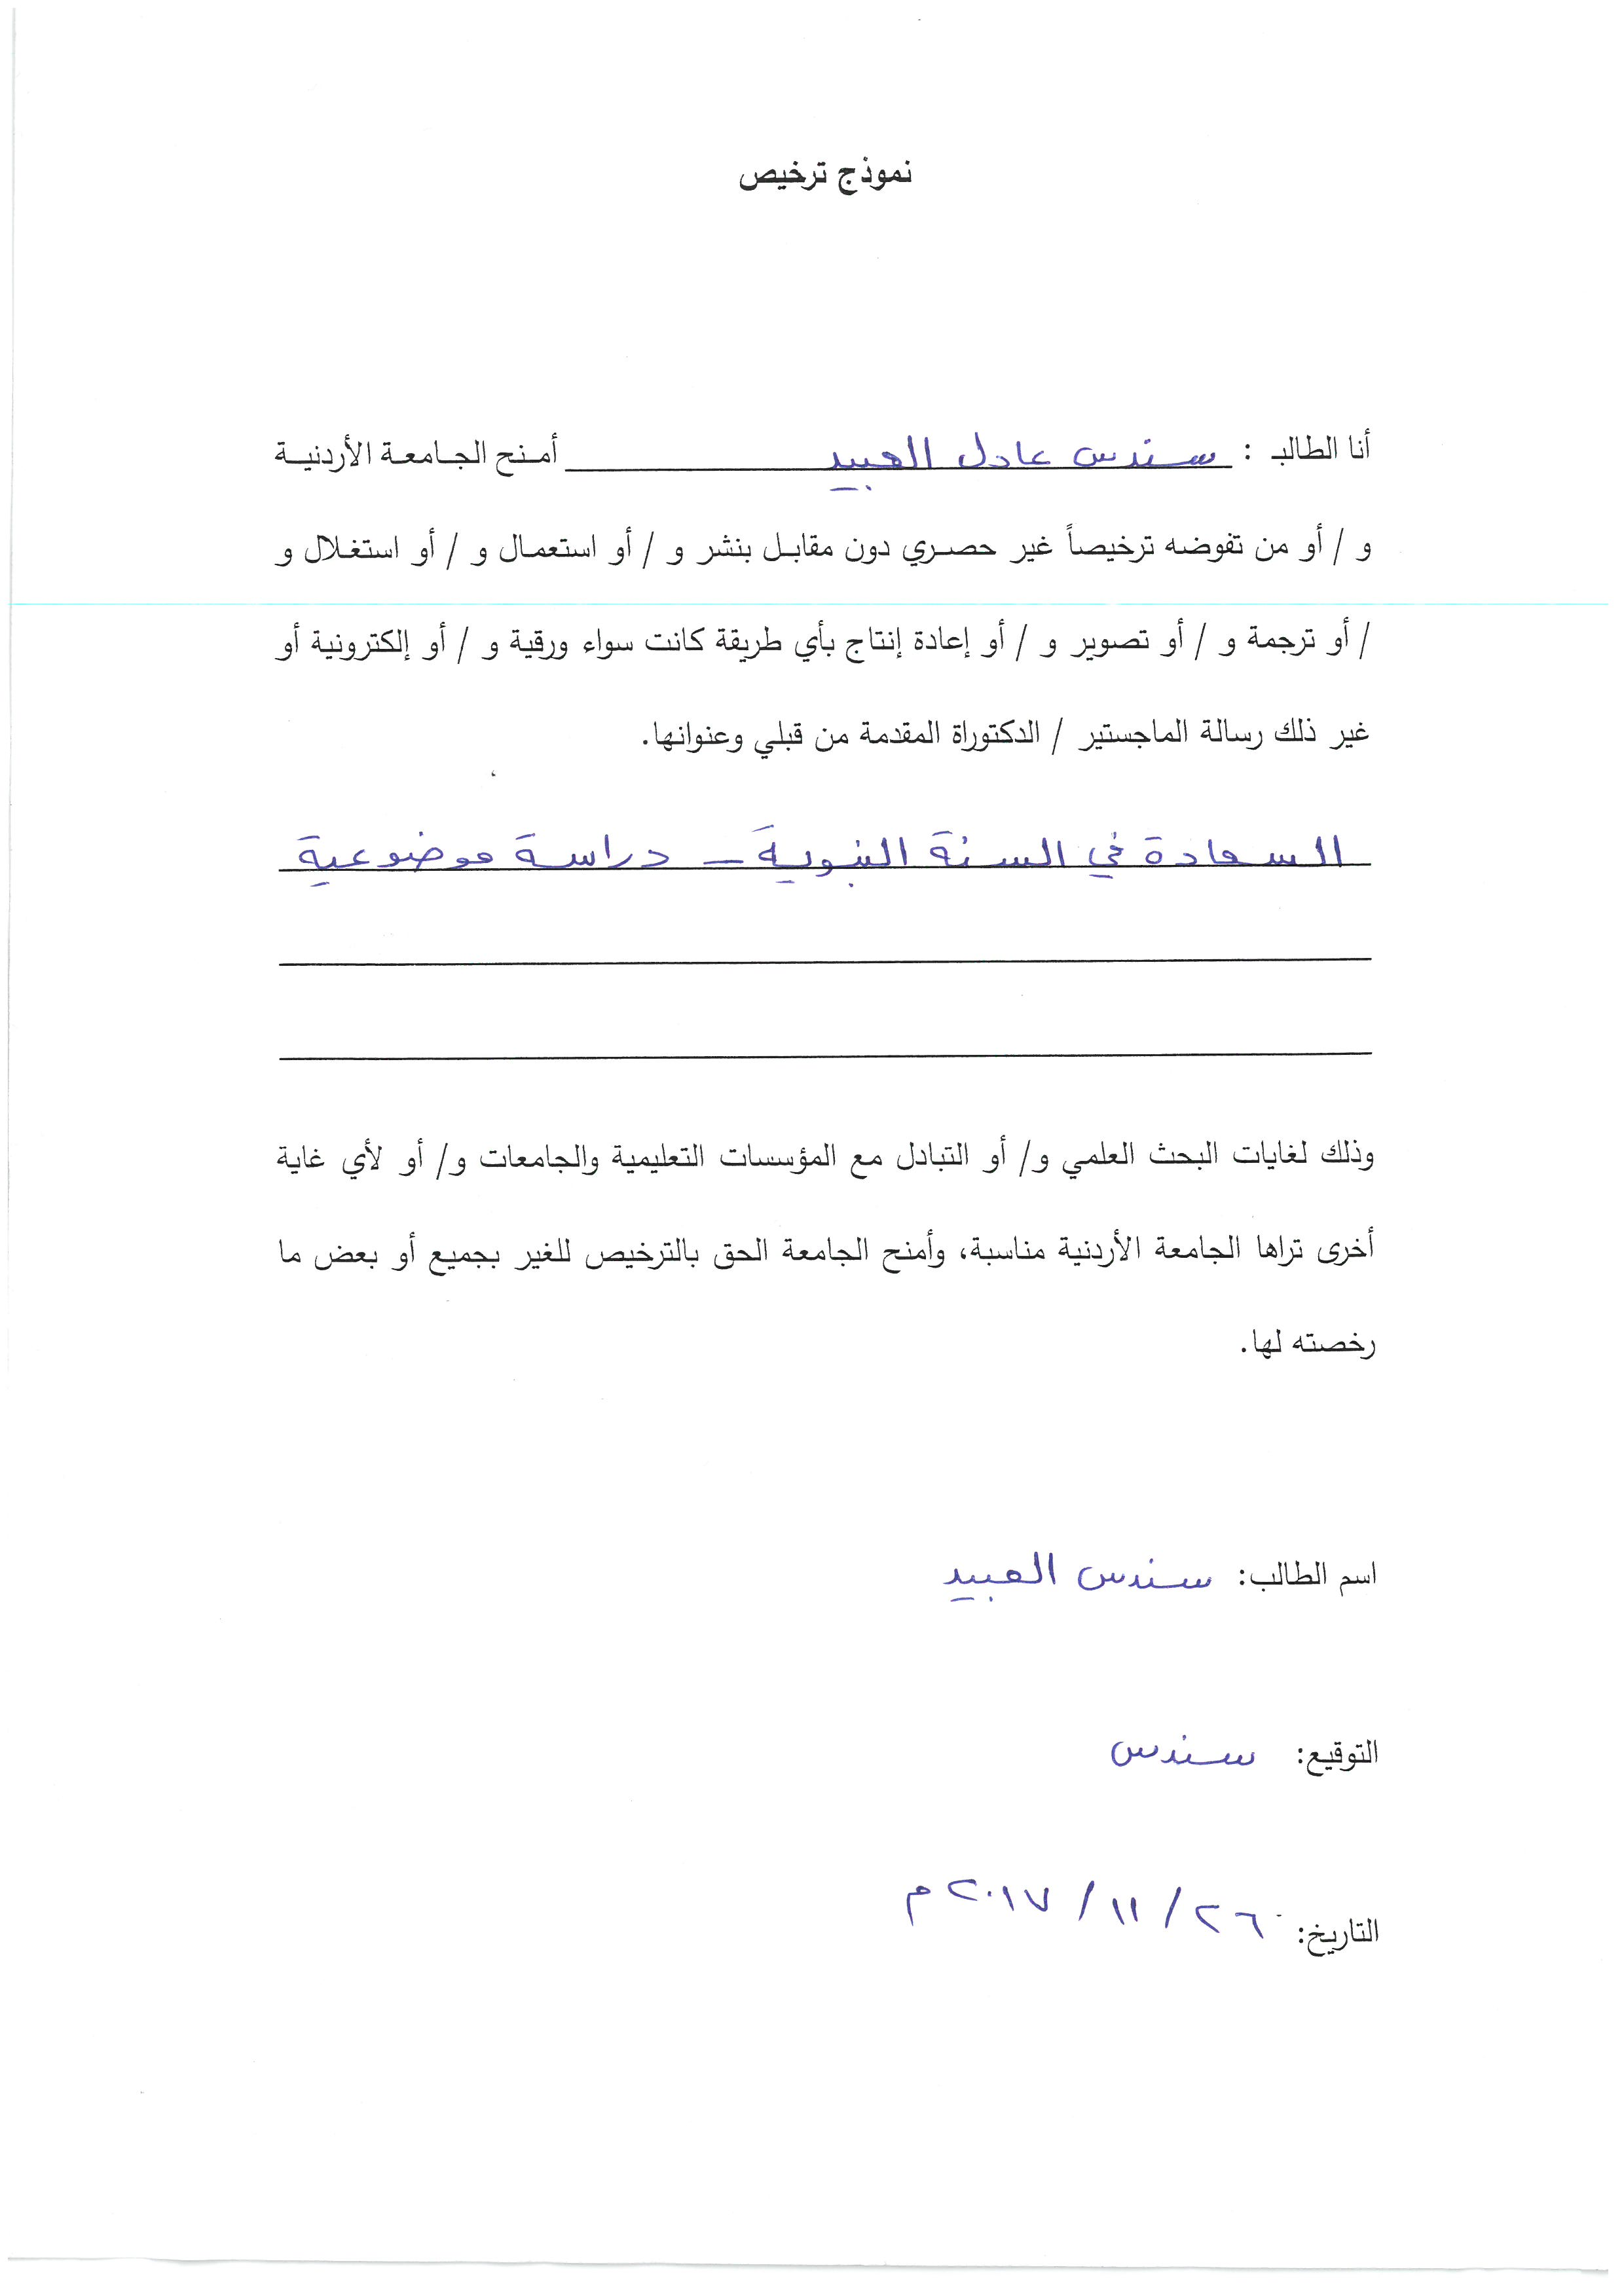 نموذج ترخيص
أنا الطالب : سندس عادل العبيد أمنح الجامعة الأردنية
و / أو من تفوضه ترخيصاً غير حصري دون مقابل بنشر و / أو استعمال و / أو استغلال و
/ أو ترجمة و / أو تصوير و / أو إعادة إنتاج بأي طريقة كانت سواء ورقية و / أو إلكترونية أو
غير ذلك رسالة الماجستير / الدكتوراة المقدمة من قبلي وعنوانها.
السعادة في السنة النبوية - دراسة موضوعية
وذلك لغايات البحث العلمي و/ أو التبادل مع المؤسسات التعليمية والجامعات و/ أو لأي غاية
أخرى تراها الجامعة الأردنية مناسبة، وأمنح الجامعة الحق بالترخيص للغير بجميع أو بعض ما
رخصته لها.
اسم الطالب: سندس العبيد
التوقيع: سندس
التاريخ: ٢٦ / ١١ / ٢٠١٧ م